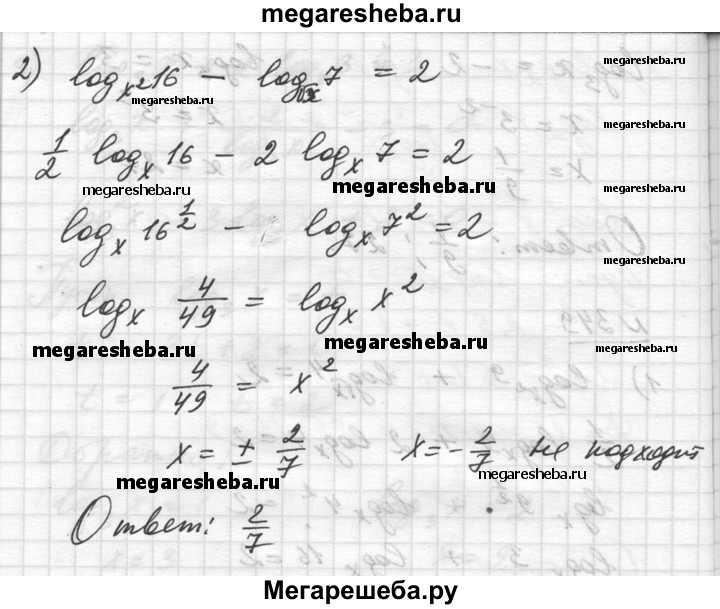 megaresheba.ru
2) log_{x^2} 16 − log_{√x} 7 = 2
megaresheba.ru megaresheba.ru
megaresheba.ru
1/2 log_x 16 − 2 log_x 7 = 2
megaresheba.ru megaresheba.ru
log_x 16^{1/2} − log_x 7^2 = 2
megaresheba.ru
log_x 4/49 = log_x x^2
megaresheba.ru megaresheba.ru
4/49 = x^2
x = ± 2/7 x = − 2/7 не подходит
megaresheba.ru megaresheba.ru
Ответ: 2/7
megaresheba.ru
Мегарешеба.ру